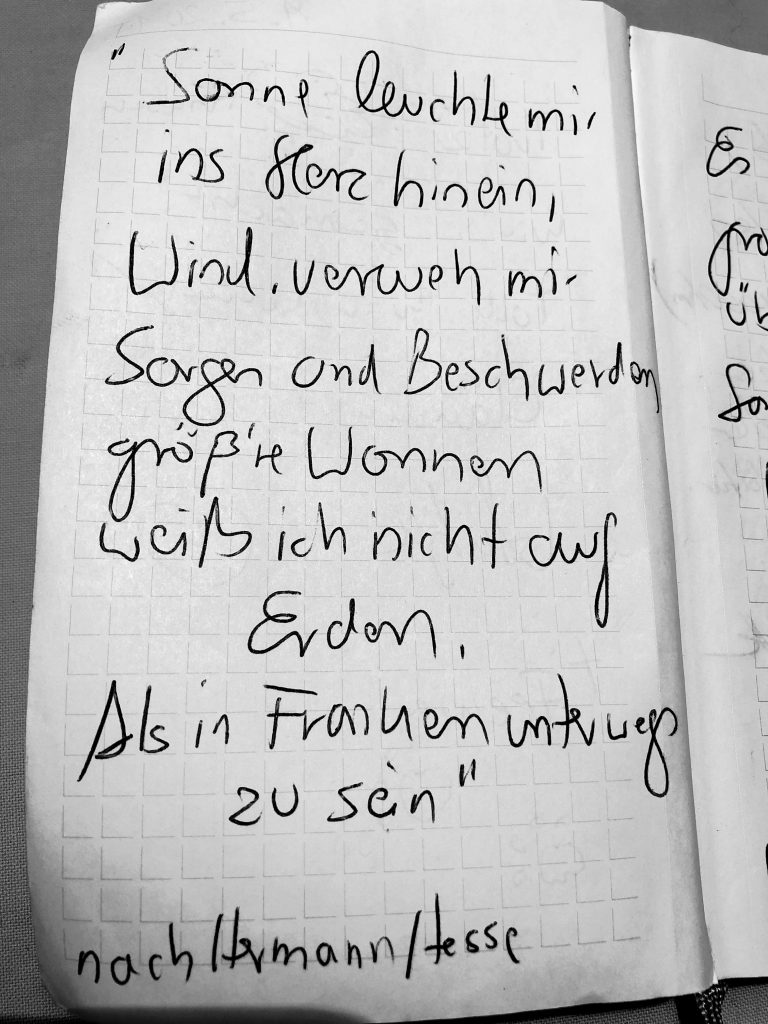 "Sonne leuchte mir
ins Herz hinein,
Wind, verweh mir
Sorgen und Beschwerden
größ're Wonnen
weiß ich nicht auf
Erden.
Als in Franken unterwegs
zu sein"
nach Hermann Hesse
Es